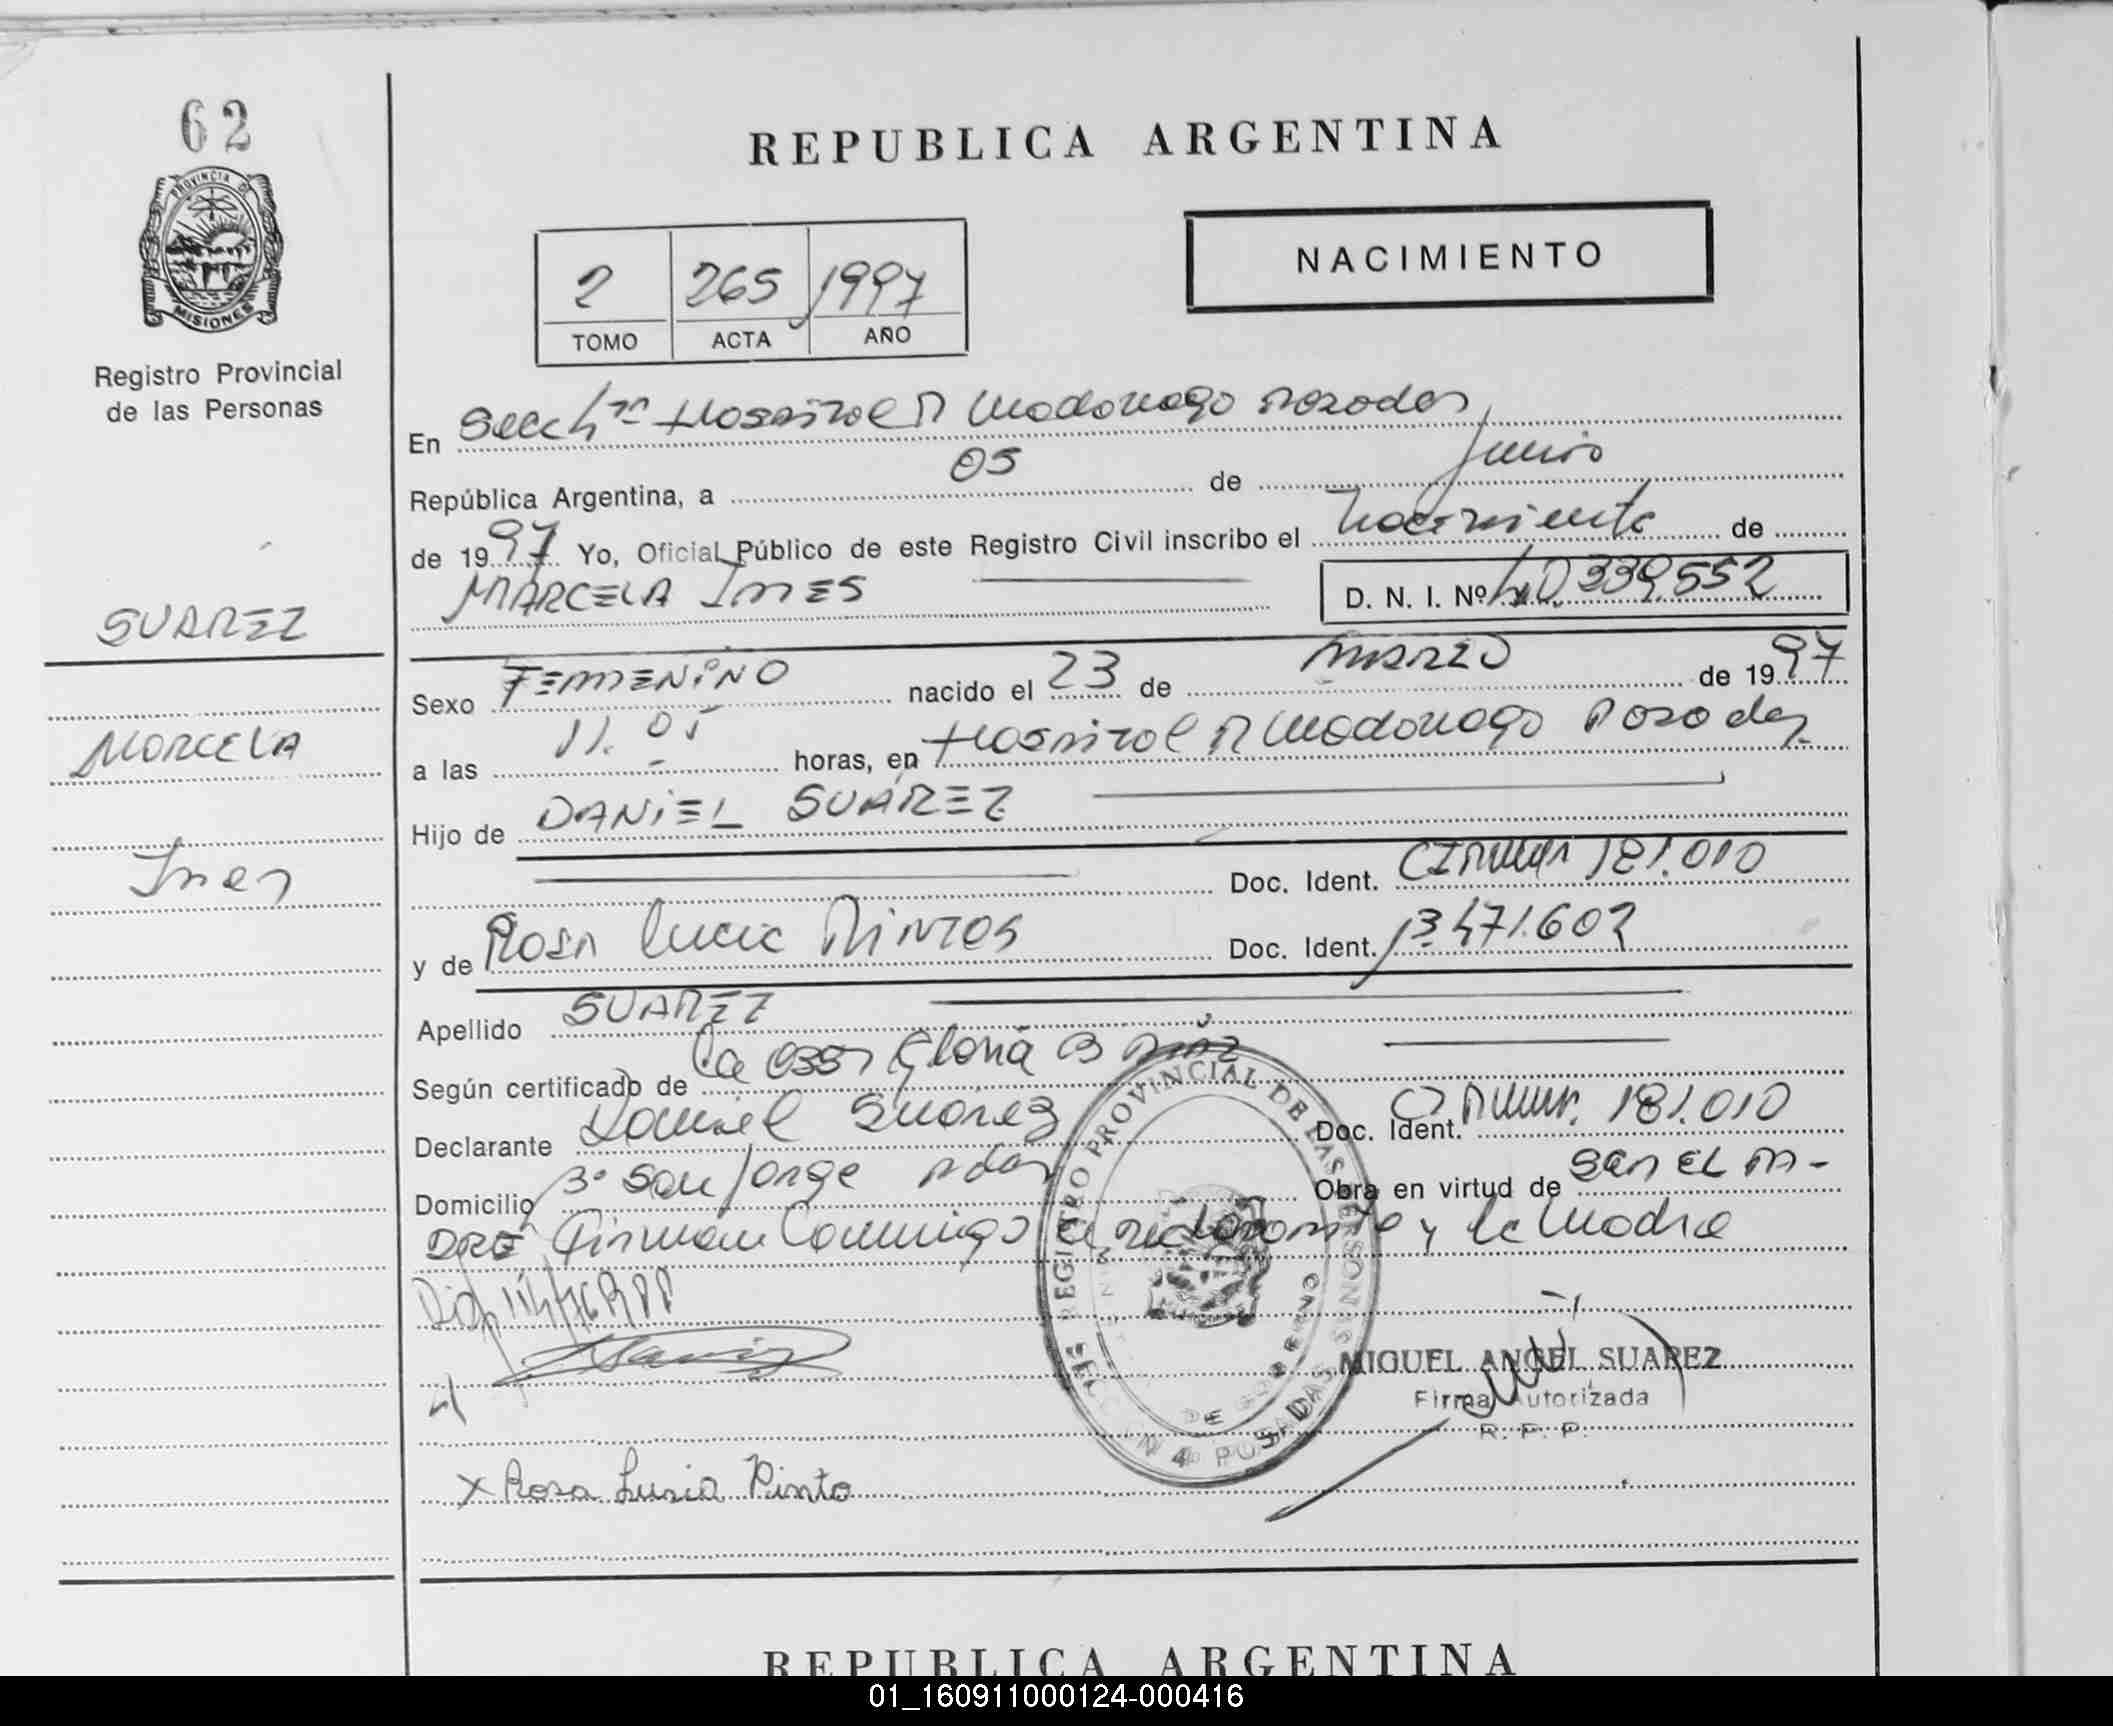 62
PROVINCIA DE
MISIONES
Registro Provincial
de las Personas
REPUBLICA ARGENTINA
NACIMIENTO
2 265 1997
TOMO ACTA AÑO
En Secc 4ta Hospital R Madariaga Posadas
República Argentina, a 05 de Junio
de 1997 Yo, Oficial Público de este Registro Civil inscribo el nacimiento de
MARCELA INES D. N. I. Nº 40.339.552
SUAREZ
Sexo FEMENINO nacido el 23 de MARZO de 1997
MARCELA
a las 11.05 horas, en Hospital R Madariaga Posadas
Hijo de DANIEL SUAREZ
Ines
Doc. Ident. 181.010
y de ROSA Lucia PINTOS Doc. Ident. 13.471.602
Apellido SUAREZ
Según certificado de la Gloria B
Declarante Daniel Suarez Doc. Ident. 181.010
Domicilio Bº San Jorge Pdas Obra en virtud de SER EL PA-
DRE Firman Conmigo el declarante y la Madre
REGISTRO PROVINCIAL DE LAS PERSONAS
SECCION 4 POSADAS
MIGUEL ANGEL SUAREZ
Firma Autorizada
R. P. P.
x Rosa Lusia Pinto
REPUBLICA ARGENTINA
01_160911000124-000416